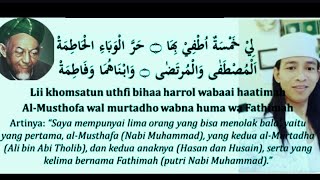 لِيْ خَمْسَةٌ أُطْفِيْ بِهَا ۞ حَرَّ الْوَبَاءِ الْحَاطِمَةْ
الْمُصْطَفَى وَالْمُرْتَضَى ۞ وَابْنَاهُمَا وَفَاطِمَةْ
Lii khomsatun uthfi bihaa harrol wabaai haatimah
Al-Musthofa wal murtadho wabna huma wa Fathimah
Artinya: "Saya mempunyai lima orang yang bisa menolak bala, yaitu
yang pertama, al-Musthafa (Nabi Muhammad), yang kedua al-Murtadha
(Ali bin Abi Tholib), dan kedua anaknya (Hasan dan Husain), serta yang
kelima bernama Fathimah (putri Nabi Muhammad)."